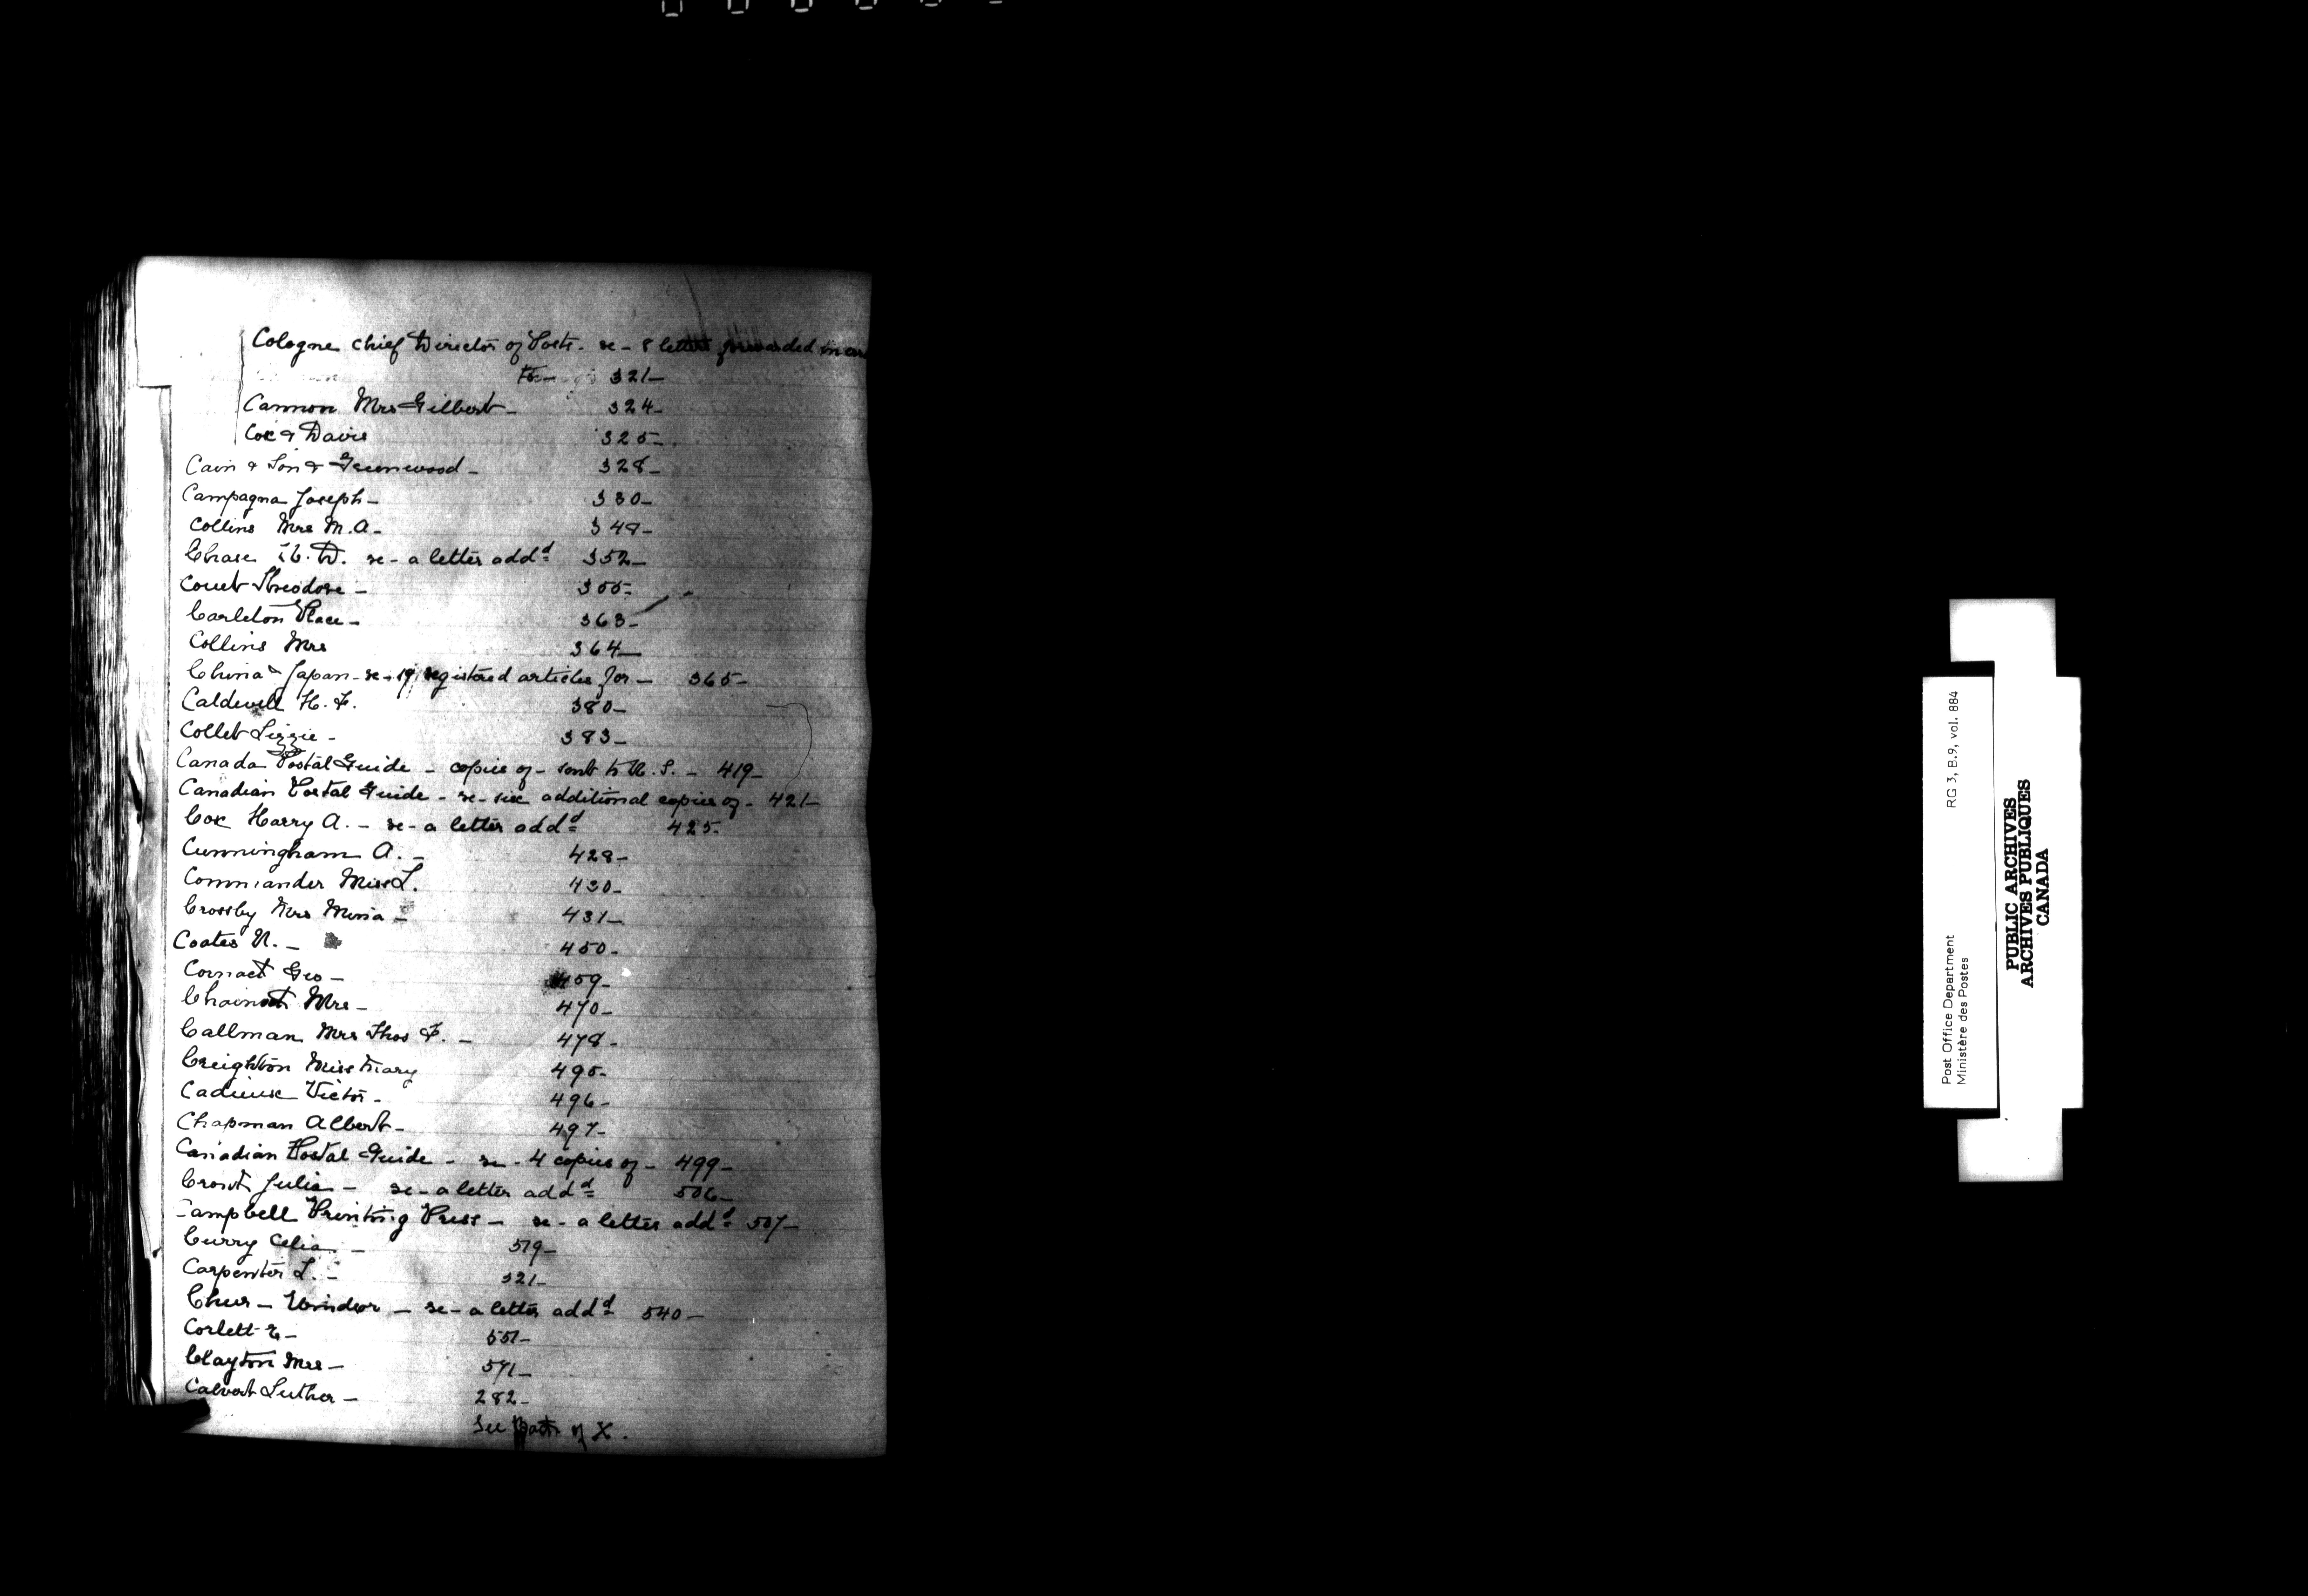 Cologne Chief Director of Posts - re - 8 letters forwarded in
to - 321 -
Cannon Mrs Gilbert - 324 -
Cox & Davis 325 -
Cain & Son & Greenwood - 328 -
Campagna Joseph - 330 -
Collins Mrs M. A. - 348 -
Chase D. re - a letter addd 352 -
Theodore - 355 -
Carleton Place - 363 -
Collins Mrs 364 -
China & Japan - re - 19 registered articles for - 365 -
Caldwell H. F. 380 -
Collet Lizzie - 383 -
Canada Postal Guide - copies of - sent to U. S. - 419 -
Canadian Postal Guide - re - six additional copies of - 421 -
Cox Harry A. - re - a letter addd 425 -
Cunningham A. - 428 -
Commander Miss L. 430 -
Crossby Mrs Mina - 431 -
Coates N. - 450 -
Geo - 459 -
Mrs - 470 -
Callman Mrs Thos F. - 478 -
Creighton Miss Mary 495 -
Cadieux Victor - 496 -
Chapman Albert - 497 -
Canadian Postal Guide - re - 4 copies of - 499 -
Julia - re - a letter addd 506 -
Campbell Printing Press - re - a letter addd 507 -
Curry Celia - 519 -
Carpenter L. - 521 -
Windsor - re - a letter addd 540 -
Corlett E - 551 -
Clayton Mrs - 571 -
Calvert Luther - 282 -
See of X.
Post Office Department RG 3, B.9, vol. 884
Ministère des Postes
PUBLIC ARCHIVES
ARCHIVES PUBLIQUES
CANADA